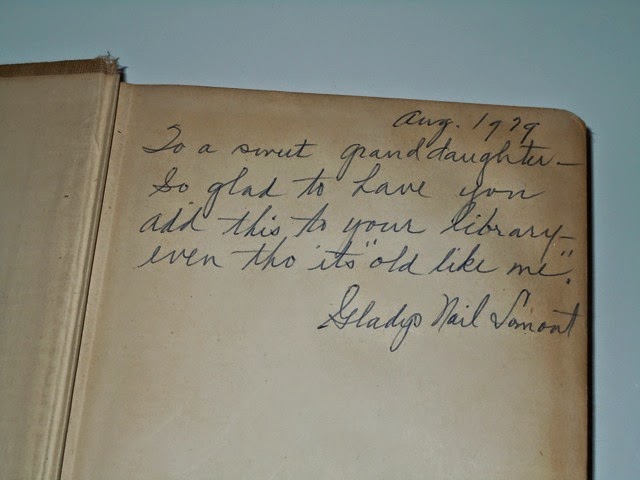 Aug. 1979
To a sweet granddaughter—
So glad to have you
add this to your library—
even tho its "old like me".
Gladys Nail